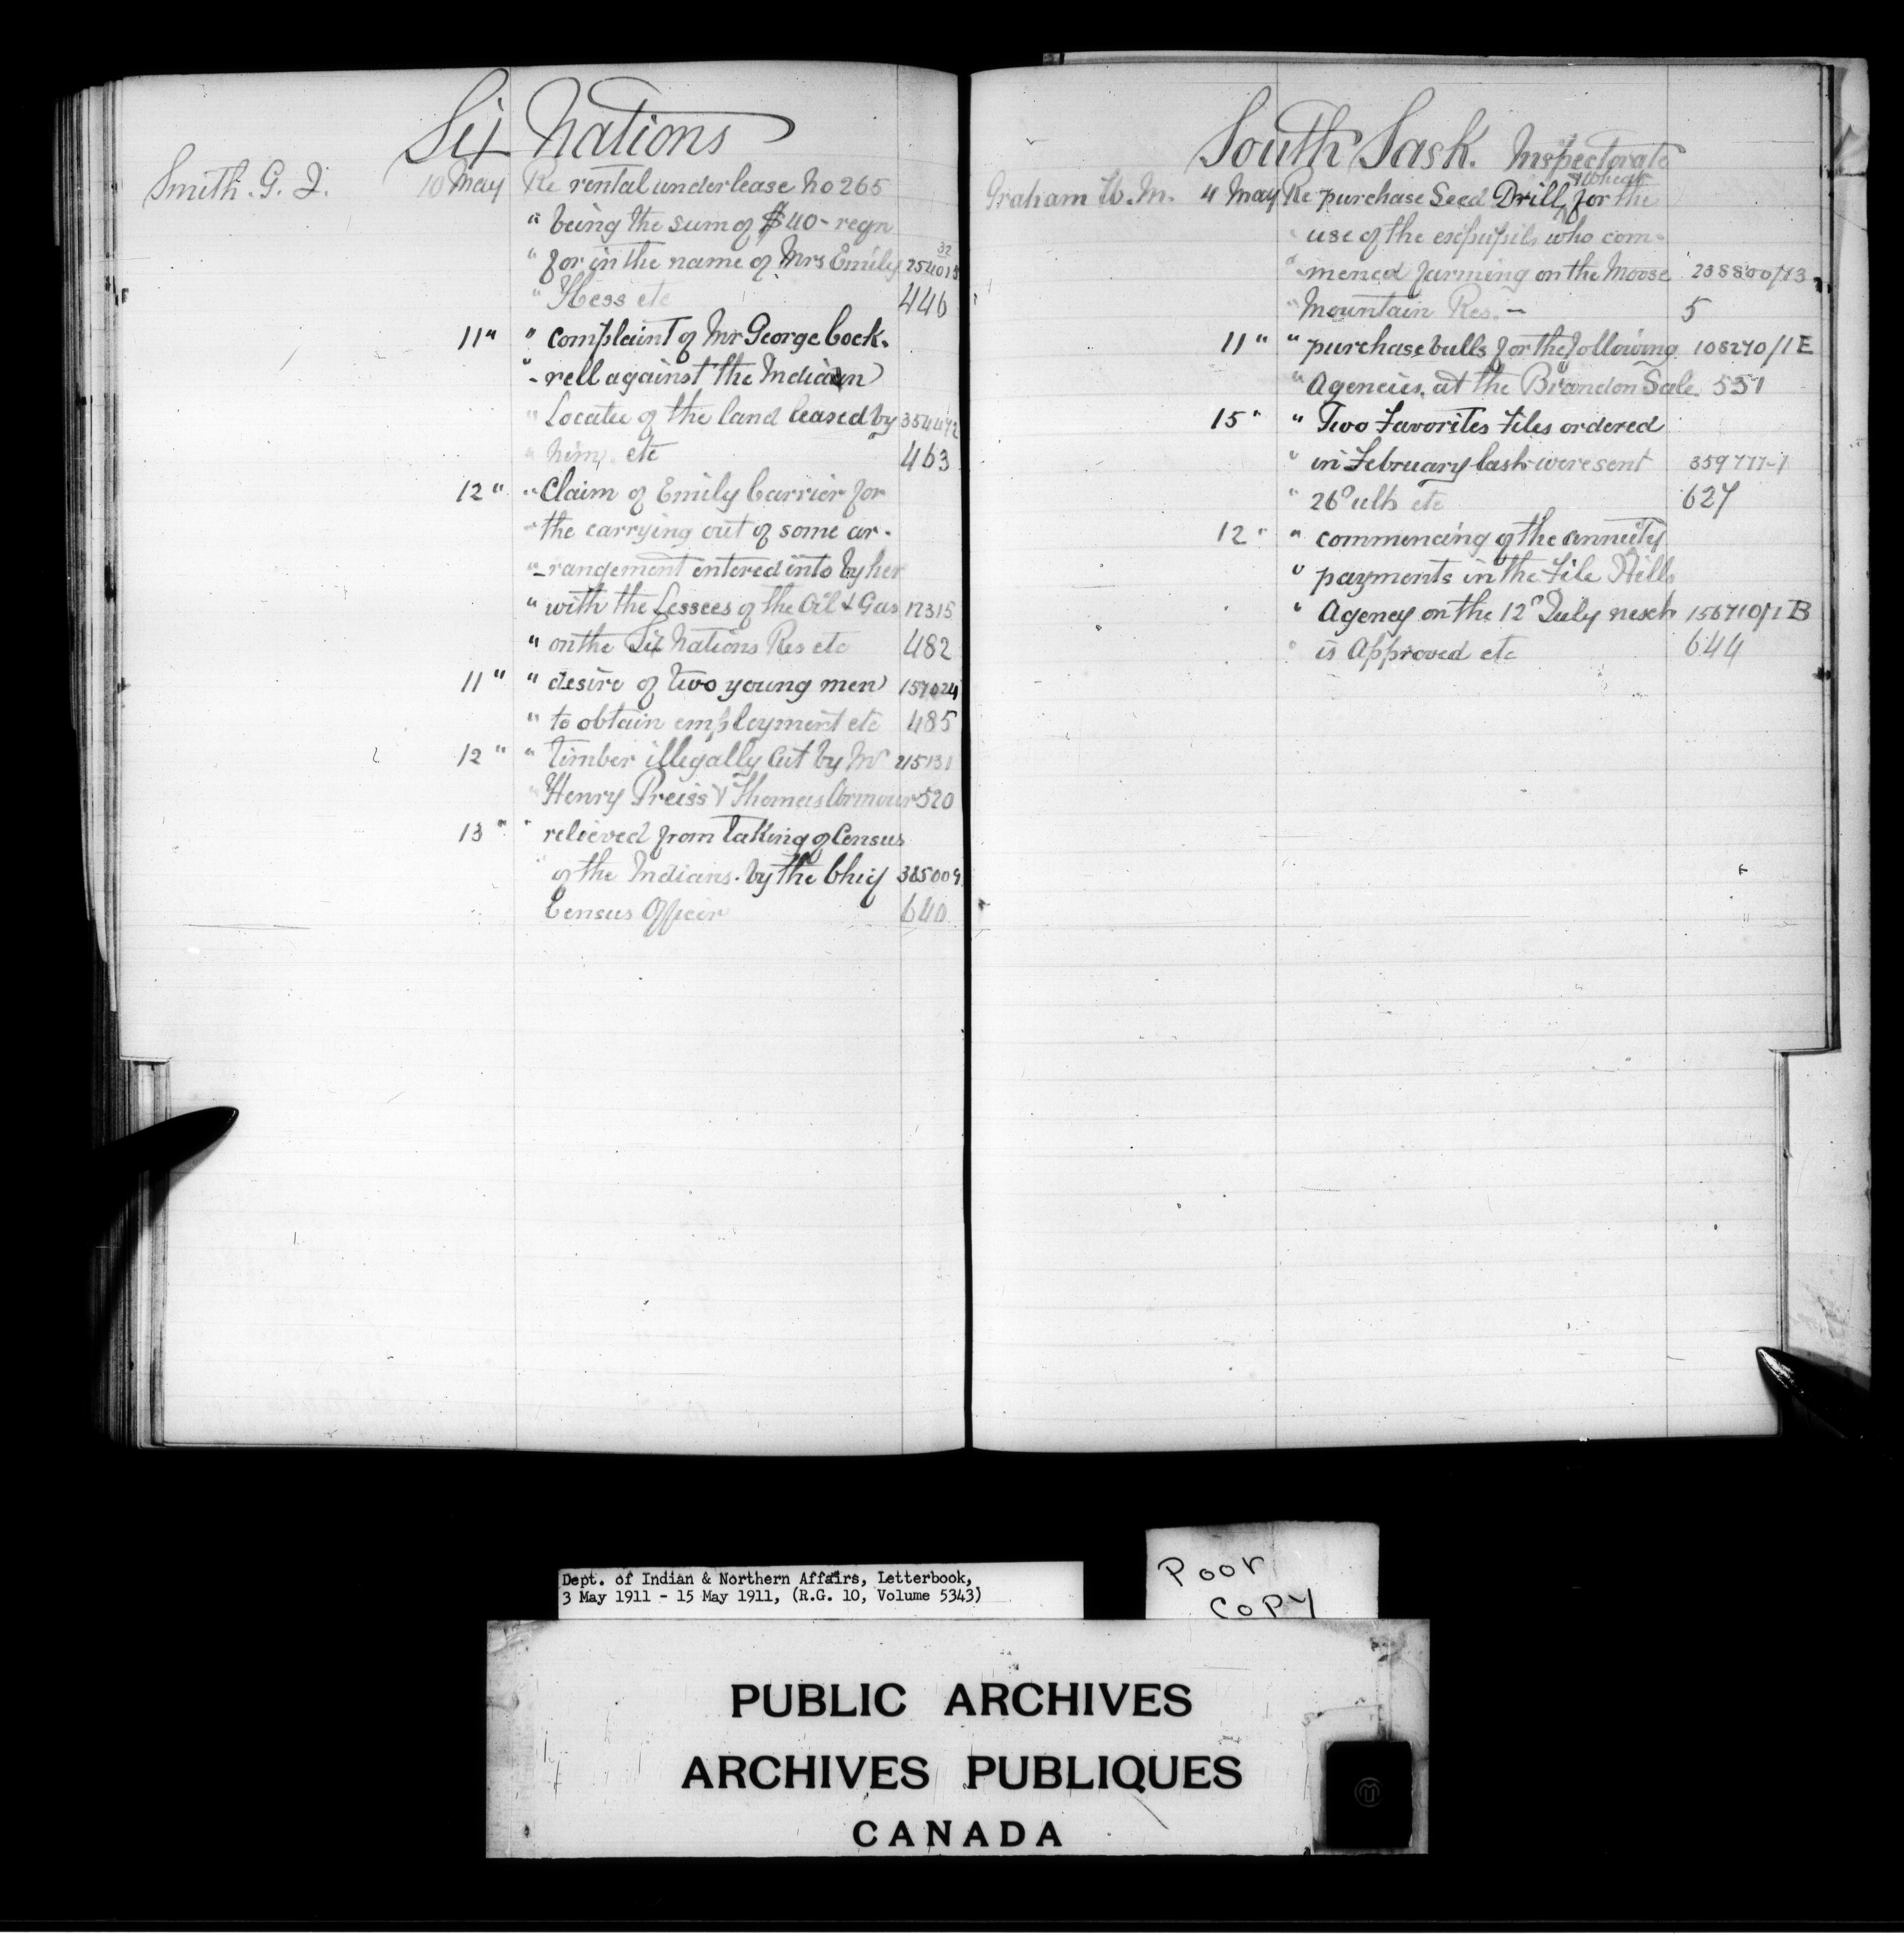 Six Nations
Smith. G. J. 10 May Re rental under lease No 265
" being the sum of $40- regn
" for in the name of Mrs Emily 254015
32
" Hess etc 446
11 " " complaint of Mr George Cock-
" -rell against the Indian
" Locatee of the land leased by 354472
" him, etc 463
12 " " Claim of Emily Carrier for
" the carrying out of some ar-
" -rangement entered into by her
" with the Lessees of the Oil & Gas 17315
" on the Six Nations Res etc 482
11 " " desire of two young men 157024
" to obtain employment etc 485
12 " " timber illegally cut by Mr 215131
" Henry Preiss & Thomas Armour 520
13 " " relieved from taking of Census
" of the Indians. by the Chief 385009
Census Officer 640
South Sask. Inspectorate
& Wheat
Graham W. M. 4 May Re purchase Seed Drill, for the
" use of the expupils who com-
" -menced farming on the Moose 238800/13
" Mountain Res. - 5
11 " " purchase bulls for the following 108270/1 E
" Agencies, at the Brandon Sale. 551
15 " " Two Favorites Files ordered
" in February last were sent 359777-1
" 26° ult etc 627
12 " " commencing of the annuity
" payments in the File Hills
" Agency on the 12° July next 156710/1 B
" is Approved etc 644
Dept. of Indian & Northern Affairs, Letterbook,
3 May 1911 - 15 May 1911, (R.G. 10, Volume 5343)
Poor
Copy
PUBLIC ARCHIVES
ARCHIVES PUBLIQUES
CANADA